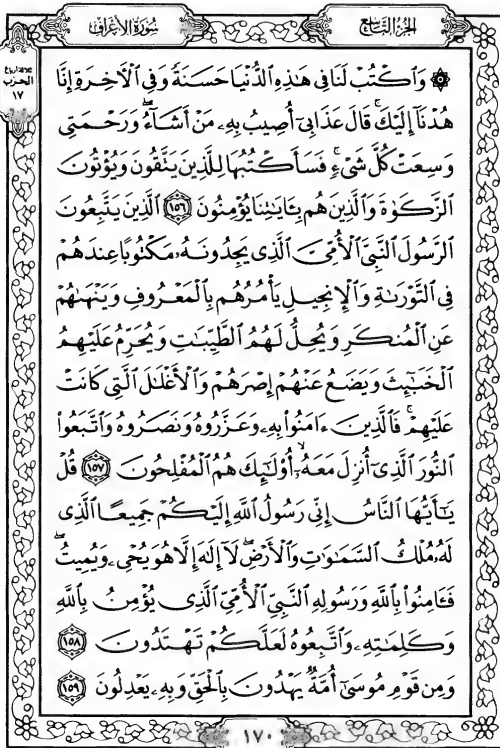 سُورَةُ الأَعْرَافِ
الجُزْءُ التَّاسِعُ
الحزب
١٧
۞ وَٱكْتُبْ لَنَا فِى هَٰذِهِ ٱلدُّنْيَا حَسَنَةً وَفِى ٱلْـَٔاخِرَةِ إِنَّا
هُدْنَآ إِلَيْكَ ۚ قَالَ عَذَابِىٓ أُصِيبُ بِهِۦ مَنْ أَشَآءُ ۖ وَرَحْمَتِى
وَسِعَتْ كُلَّ شَىْءٍ ۚ فَسَأَكْتُبُهَا لِلَّذِينَ يَتَّقُونَ وَيُؤْتُونَ
ٱلزَّكَوٰةَ وَٱلَّذِينَ هُم بِـَٔايَٰتِنَا يُؤْمِنُونَ ١٥٦ ٱلَّذِينَ يَتَّبِعُونَ
ٱلرَّسُولَ ٱلنَّبِىَّ ٱلْأُمِّىَّ ٱلَّذِى يَجِدُونَهُۥ مَكْتُوبًا عِندَهُمْ
فِى ٱلتَّوْرَىٰةِ وَٱلْإِنجِيلِ يَأْمُرُهُم بِٱلْمَعْرُوفِ وَيَنْهَىٰهُمْ
عَنِ ٱلْمُنكَرِ وَيُحِلُّ لَهُمُ ٱلطَّيِّبَٰتِ وَيُحَرِّمُ عَلَيْهِمُ
ٱلْخَبَٰٓئِثَ وَيَضَعُ عَنْهُمْ إِصْرَهُمْ وَٱلْأَغْلَٰلَ ٱلَّتِى كَانَتْ
عَلَيْهِمْ ۚ فَٱلَّذِينَ ءَامَنُوا۟ بِهِۦ وَعَزَّرُوهُ وَنَصَرُوهُ وَٱتَّبَعُوا۟
ٱلنُّورَ ٱلَّذِىٓ أُنزِلَ مَعَهُۥٓ ۙ أُو۟لَٰٓئِكَ هُمُ ٱلْمُفْلِحُونَ ١٥٧ قُلْ
يَٰٓأَيُّهَا ٱلنَّاسُ إِنِّى رَسُولُ ٱللَّهِ إِلَيْكُمْ جَمِيعًا ٱلَّذِى
لَهُۥ مُلْكُ ٱلسَّمَٰوَٰتِ وَٱلْأَرْضِ ۖ لَآ إِلَٰهَ إِلَّا هُوَ يُحْىِۦ وَيُمِيتُ ۖ
فَـَٔامِنُوا۟ بِٱللَّهِ وَرَسُولِهِ ٱلنَّبِىِّ ٱلْأُمِّىِّ ٱلَّذِى يُؤْمِنُ بِٱللَّهِ
وَكَلِمَٰتِهِۦ وَٱتَّبِعُوهُ لَعَلَّكُمْ تَهْتَدُونَ ١٥٨
وَمِن قَوْمِ مُوسَىٰٓ أُمَّةٌ يَهْدُونَ بِٱلْحَقِّ وَبِهِۦ يَعْدِلُونَ ١٥٩
١٧٠